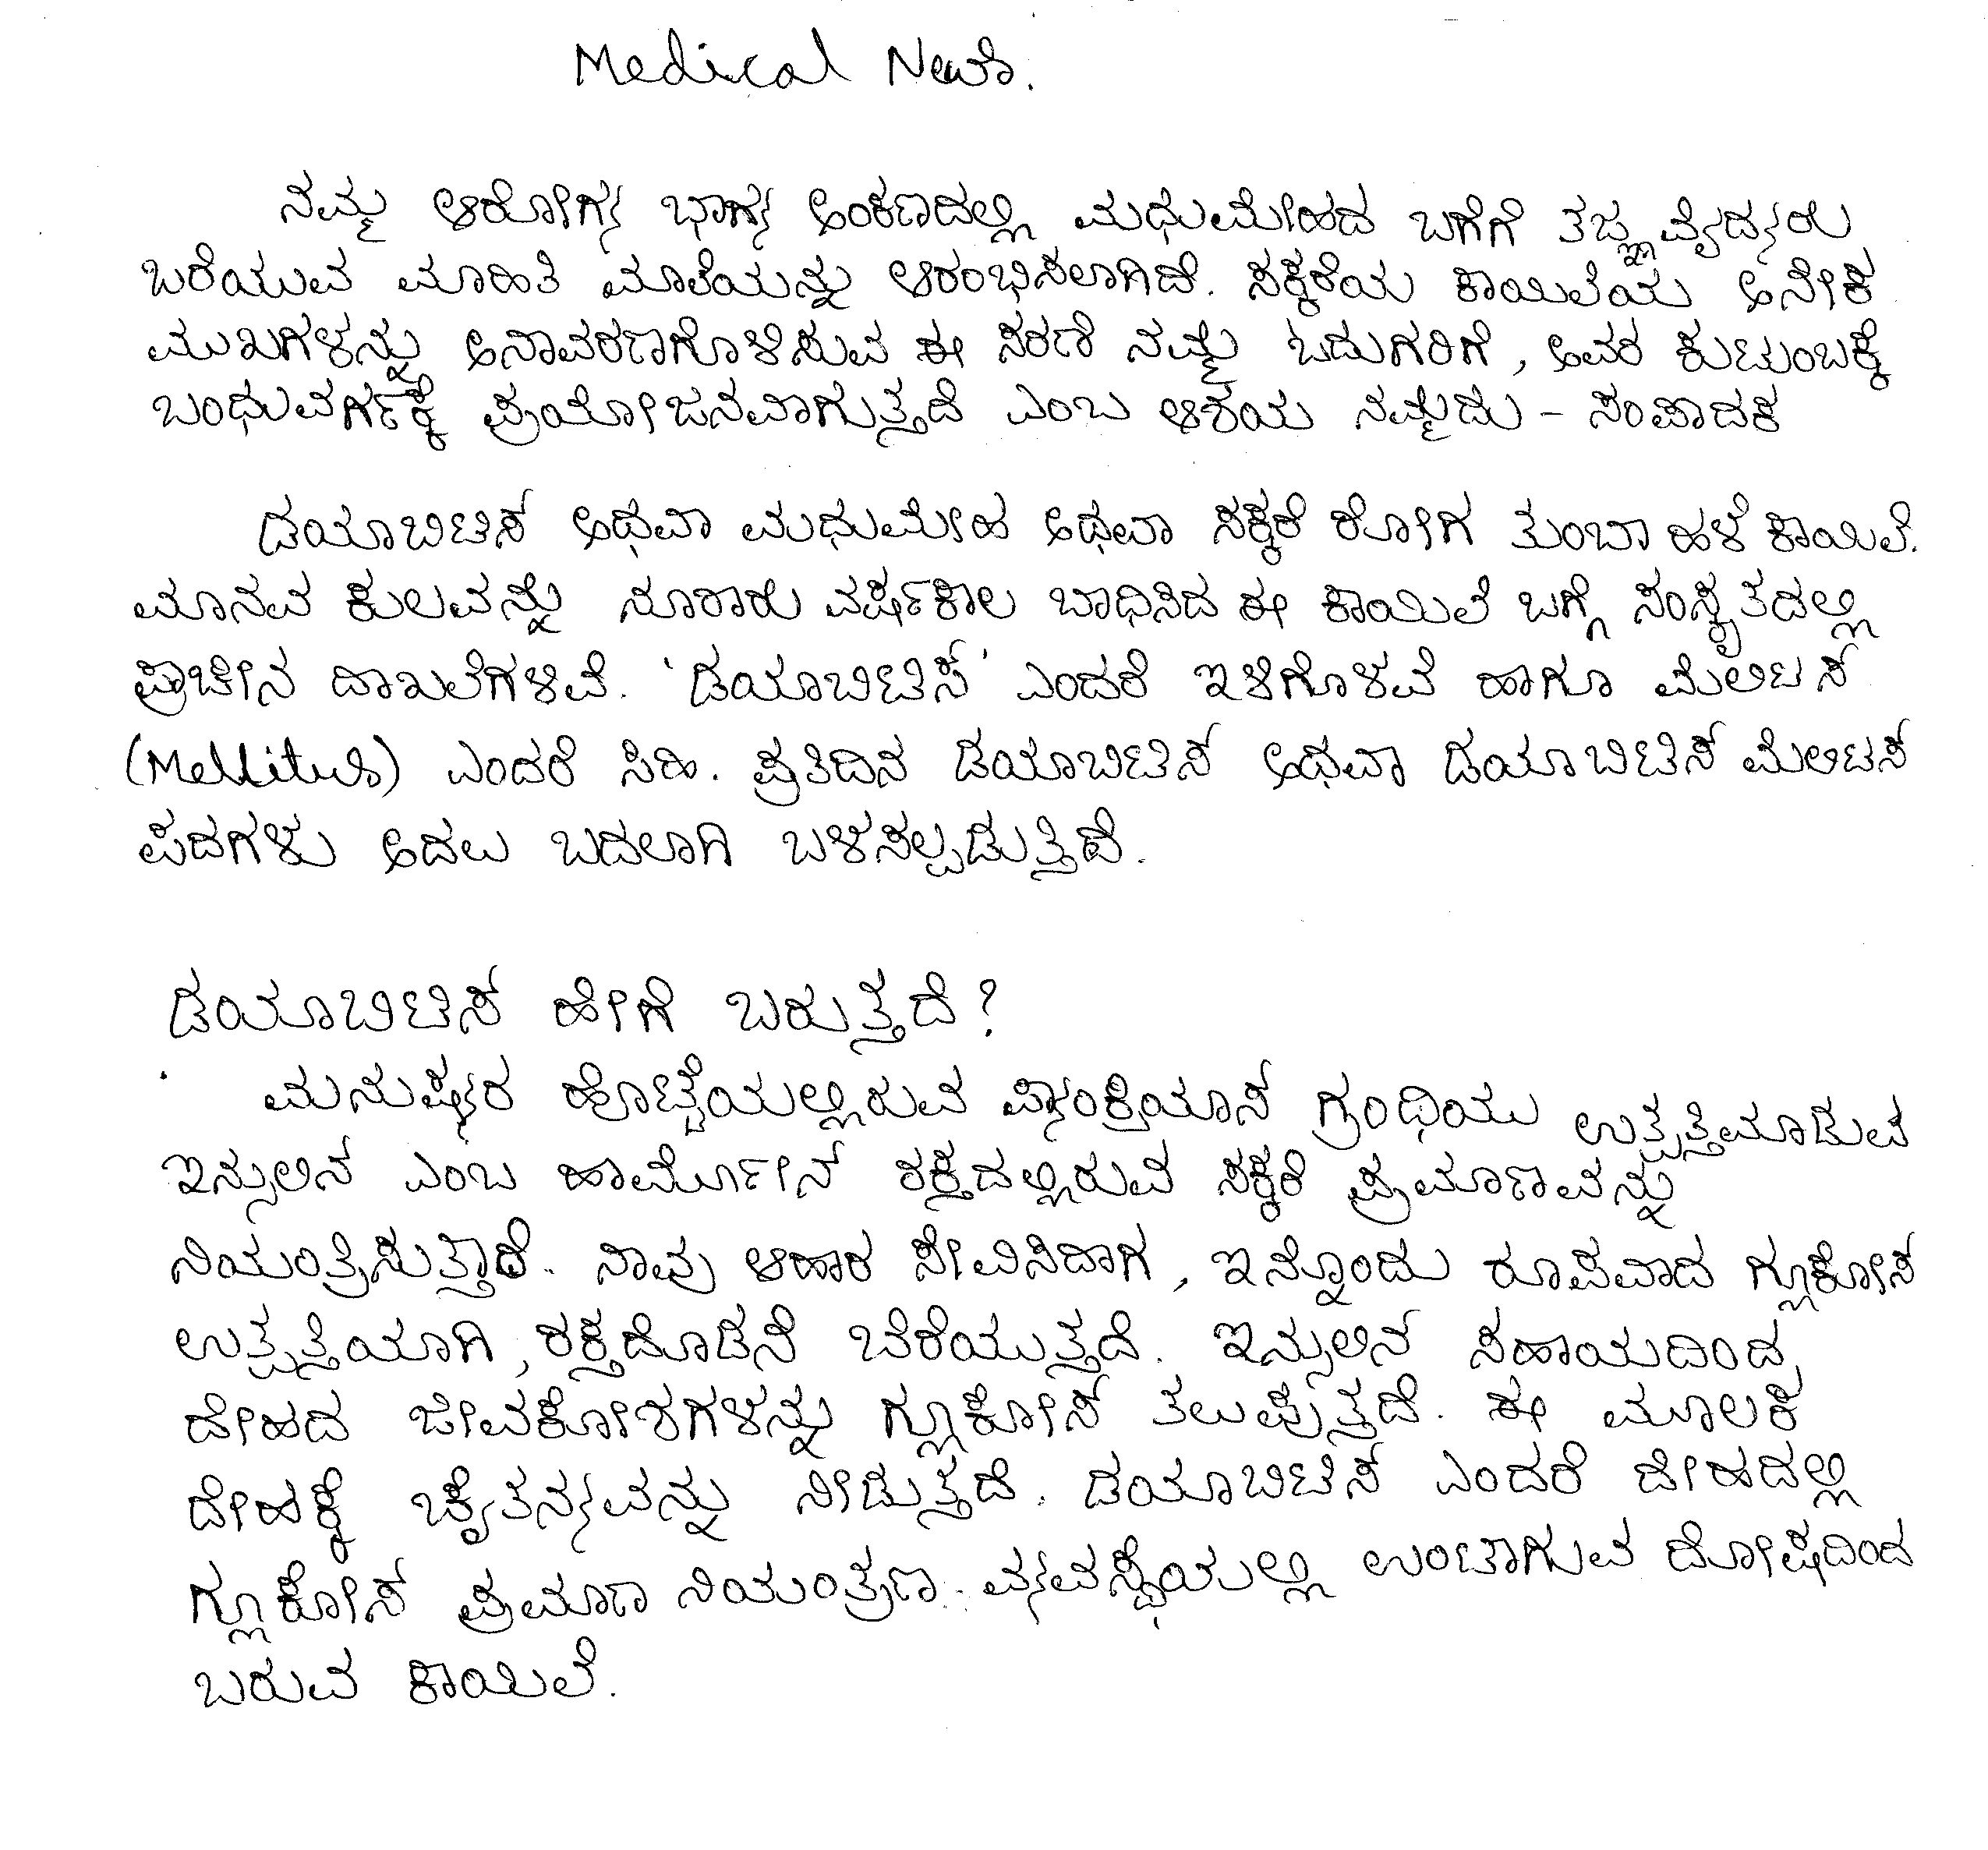 Medical News.
ನಮ್ಮ ಆರೋಗ್ಯ ಭಾಗ್ಯ ಅಂಕಣದಲ್ಲಿ ಮಧುಮೇಹದ ಬಗೆಗೆ ತಜ್ಞವೈದ್ಯರು
ಬರೆಯುವ ಮಾಹಿತಿ ಮಾಲೆಯನ್ನು ಆರಂಭಿಸಲಾಗಿದೆ. ಸಕ್ಕರೆಯ ಕಾಯಿಲೆಯ ಅನೇಕ
ಮುಖಗಳನ್ನು ಅನಾವರಣಗೊಳಿಸುವ ಈ ಸರಣಿ ನಮ್ಮ ಓದುಗರಿಗೆ, ಅವರ ಕುಟುಂಬಕ್ಕೆ
ಬಂಧುವರ್ಗಕ್ಕೆ ಪ್ರಯೋಜನವಾಗುತ್ತದೆ ಎಂಬ ಆಶಯ ನಮ್ಮದು - ಸಂಪಾದಕ
ಡಯಾಬಿಟಿಸ್ ಅಥವಾ ಮಧುಮೇಹ ಅಥವಾ ಸಕ್ಕರೆ ರೋಗ ತುಂಬಾ ಹಳೆ ಕಾಯಿಲೆ.
ಮಾನವ ಕುಲವನ್ನು ನೂರಾರು ವರ್ಷಕಾಲ ಬಾಧಿಸಿದ ಈ ಕಾಯಿಲೆ ಬಗ್ಗೆ ಸಂಸ್ಕೃತದಲ್ಲಿ
ಪ್ರಾಚೀನ ದಾಖಲೆಗಳಿವೆ. 'ಡಯಾಬಿಟಿಸ್' ಎಂದರೆ ಇಳಿಗೊಳವೆ ಹಾಗೂ ಮೆಲಿಟಸ್
(Mellitus) ಎಂದರೆ ಸಿಹಿ. ಪ್ರತಿದಿನ ಡಯಾಬಿಟಿಸ್ ಅಥವಾ ಡಯಾಬಿಟಿಸ್ ಮೆಲಿಟಸ್
ಪದಗಳು ಅದಲು ಬದಲಾಗಿ ಬಳಸಲ್ಪಡುತ್ತಿದೆ.
ಡಯಾಬಿಟಿಸ್ ಹೇಗೆ ಬರುತ್ತದೆ?
ಮನುಷ್ಯರ ಹೊಟ್ಟೆಯಲ್ಲಿರುವ ಪ್ಯಾಂಕ್ರಿಯಾಸ್ ಗ್ರಂಥಿಯು ಉತ್ಪತ್ತಿಮಾಡುವ
ಇನ್ಸುಲಿನ್ ಎಂಬ ಹಾರ್ಮೋನ್ ರಕ್ತದಲ್ಲಿರುವ ಸಕ್ಕರೆ ಪ್ರಮಾಣವನ್ನು
ನಿಯಂತ್ರಿಸುತ್ತಾದೆ. ನಾವು ಆಹಾರ ಸೇವಿಸಿದಾಗ, ಇನ್ನೊಂದು ರೂಪವಾದ ಗ್ಲೂಕೋಸ್
ಉತ್ಪತ್ತಿಯಾಗಿ, ರಕ್ತದೊಡನೆ ಬೆರೆಯುತ್ತದೆ. ಇನ್ಸುಲಿನ್ ಸಹಾಯದಿಂದ,
ದೇಹದ ಜೀವಕೋಶಗಳನ್ನು ಗ್ಲೂಕೋಸ್ ತಲುಪುತ್ತದೆ. ಈ ಮೂಲಕ
ದೇಹಕ್ಕೆ ಚೈತನ್ಯವನ್ನು ನೀಡುತ್ತದೆ. ಡಯಾಬಿಟಿಸ್ ಎಂದರೆ ದೇಹದಲ್ಲಿ
ಗ್ಲೂಕೋಸ್ ಪ್ರಮಾಣ ನಿಯಂತ್ರಣ ವ್ಯವಸ್ಥೆಯಲ್ಲಿ ಉಂಟಾಗುವ ದೋಷದಿಂದ
ಬರುವ ಕಾಯಿಲೆ.